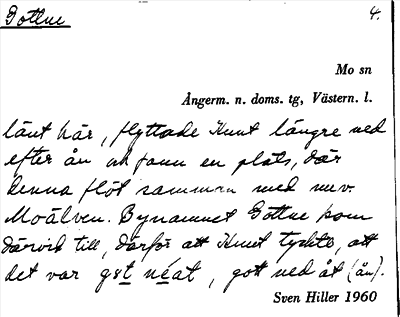 Gottne 4.
Mo sn
Ångerm. n. doms. tg, Västern. l.
länt här, flyttade Knut längre ned
efter ån och fann en plats, där
denna flöt samman med nuv.
Moälven. Bynamnet Gottne kom
därvid till, därför att Knut tyckte, att
det var gɘt néat, gott nedåt (ån).
Sven Hiller 1960